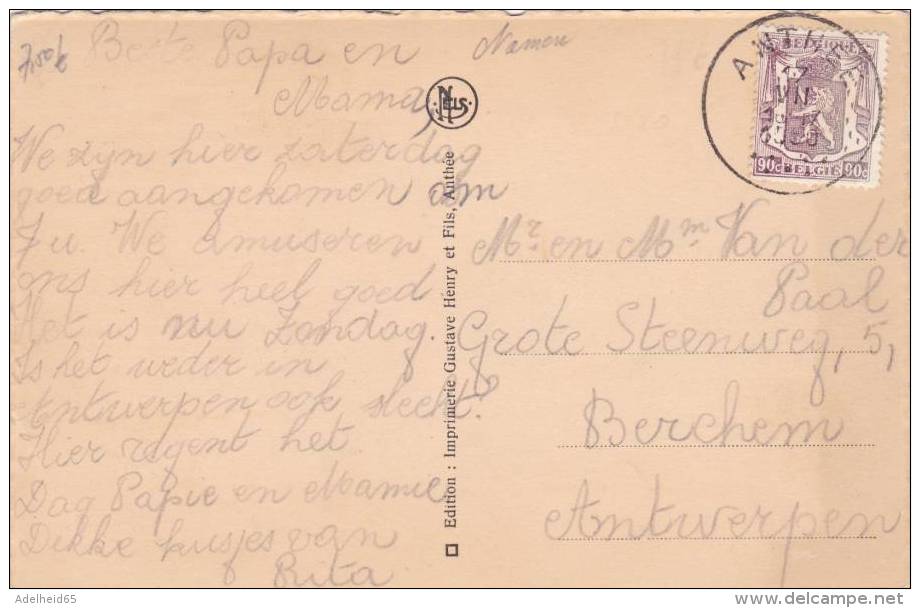 7,50 €
Beste Papa en
Mama
Namen
We zijn hier zaterdag
goed aangekomen om
7 u. We amuseren
ons hier heel goed
Het is nu Zondag.
Is het weder in
Antwerpen ook slecht?
Hier regent het
Dag Papie en Mamie
Dikke kusjes van
Rita
NELS
Edition : Imprimerie Gustave Henry et Fils, Anthée
BELGIQUE
90c BELGIË 90c
Mr. en Mm Van der
Paal
Grote Steenweg, 5,
Berchem
Antwerpen
Adelheid65